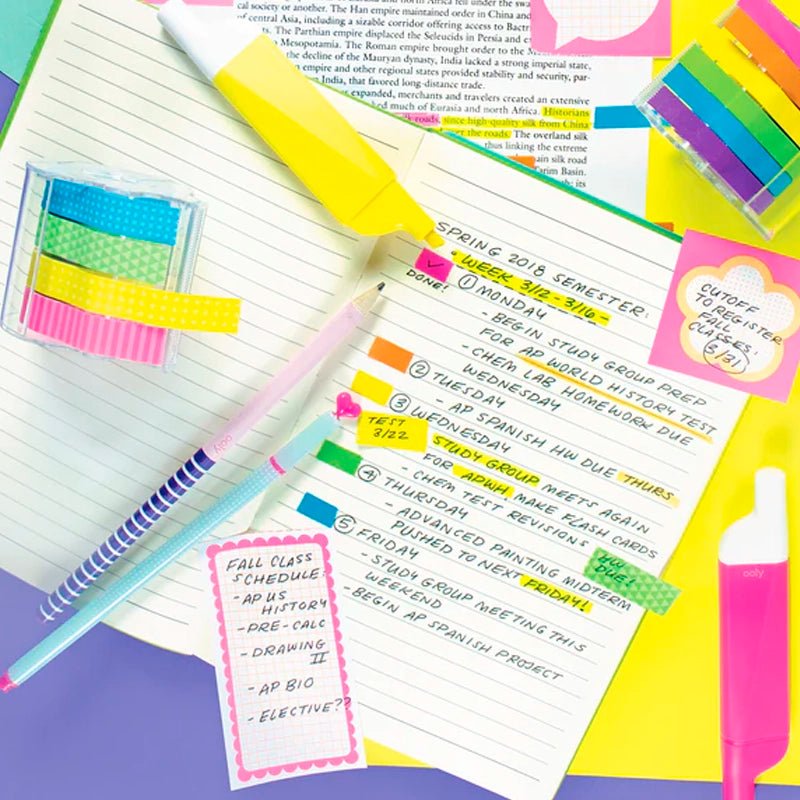 cal society or another. The Han empire maintained order in China and
of central Asia, including a sizable corridor offering access to Bactr
The Parthian empire displaced the Seleucids in Persia and
Mesopotamia. The Roman empire brought order to the
the decline of the Mauryan dynasty, India lacked a strong imperial state,
empire and other regional states provided stability and security, par-
India, that favored long-distance trade.
expanded, merchants and travelers created an extensive
much of Eurasia and north Africa. Historians
roads, since high-quality silk from China
the roads. The overland silk
thus linking the extreme
ain silk road
Tarim Basin.
its
SPRING 2018 SEMESTER:
• WEEK 3/12-3/16-
DONE!
① MONDAY
- BEGIN STUDY GROUP PREP
FOR AP WORLD HISTORY TEST
- CHEM LAB HOMEWORK DUE
WEDNESDAY
② TUESDAY
- AP SPANISH HW DUE THURS
③ WEDNESDAY
TEST
3/22
STUDY GROUP MEETS AGAIN
FOR APWH MAKE FLASH CARDS
- CHEM TEST REVISIONS
④ THURSDAY
- ADVANCED PAINTING MIDTERM
PUSHED TO NEXT FRIDAY!
HW
DUE!
⑤ FRIDAY
- STUDY GROUP MEETING THIS
WEEKEND
- BEGIN AP SPANISH PROJECT
CUTOFF
TO REGISTER
FALL
CLASSES:
3/31
FALL CLASS
SCHEDULE:
- AP US
HISTORY
- PRE-CALC
- DRAWING
II
- AP BIO
- ELECTIVE??
ooly
ooly